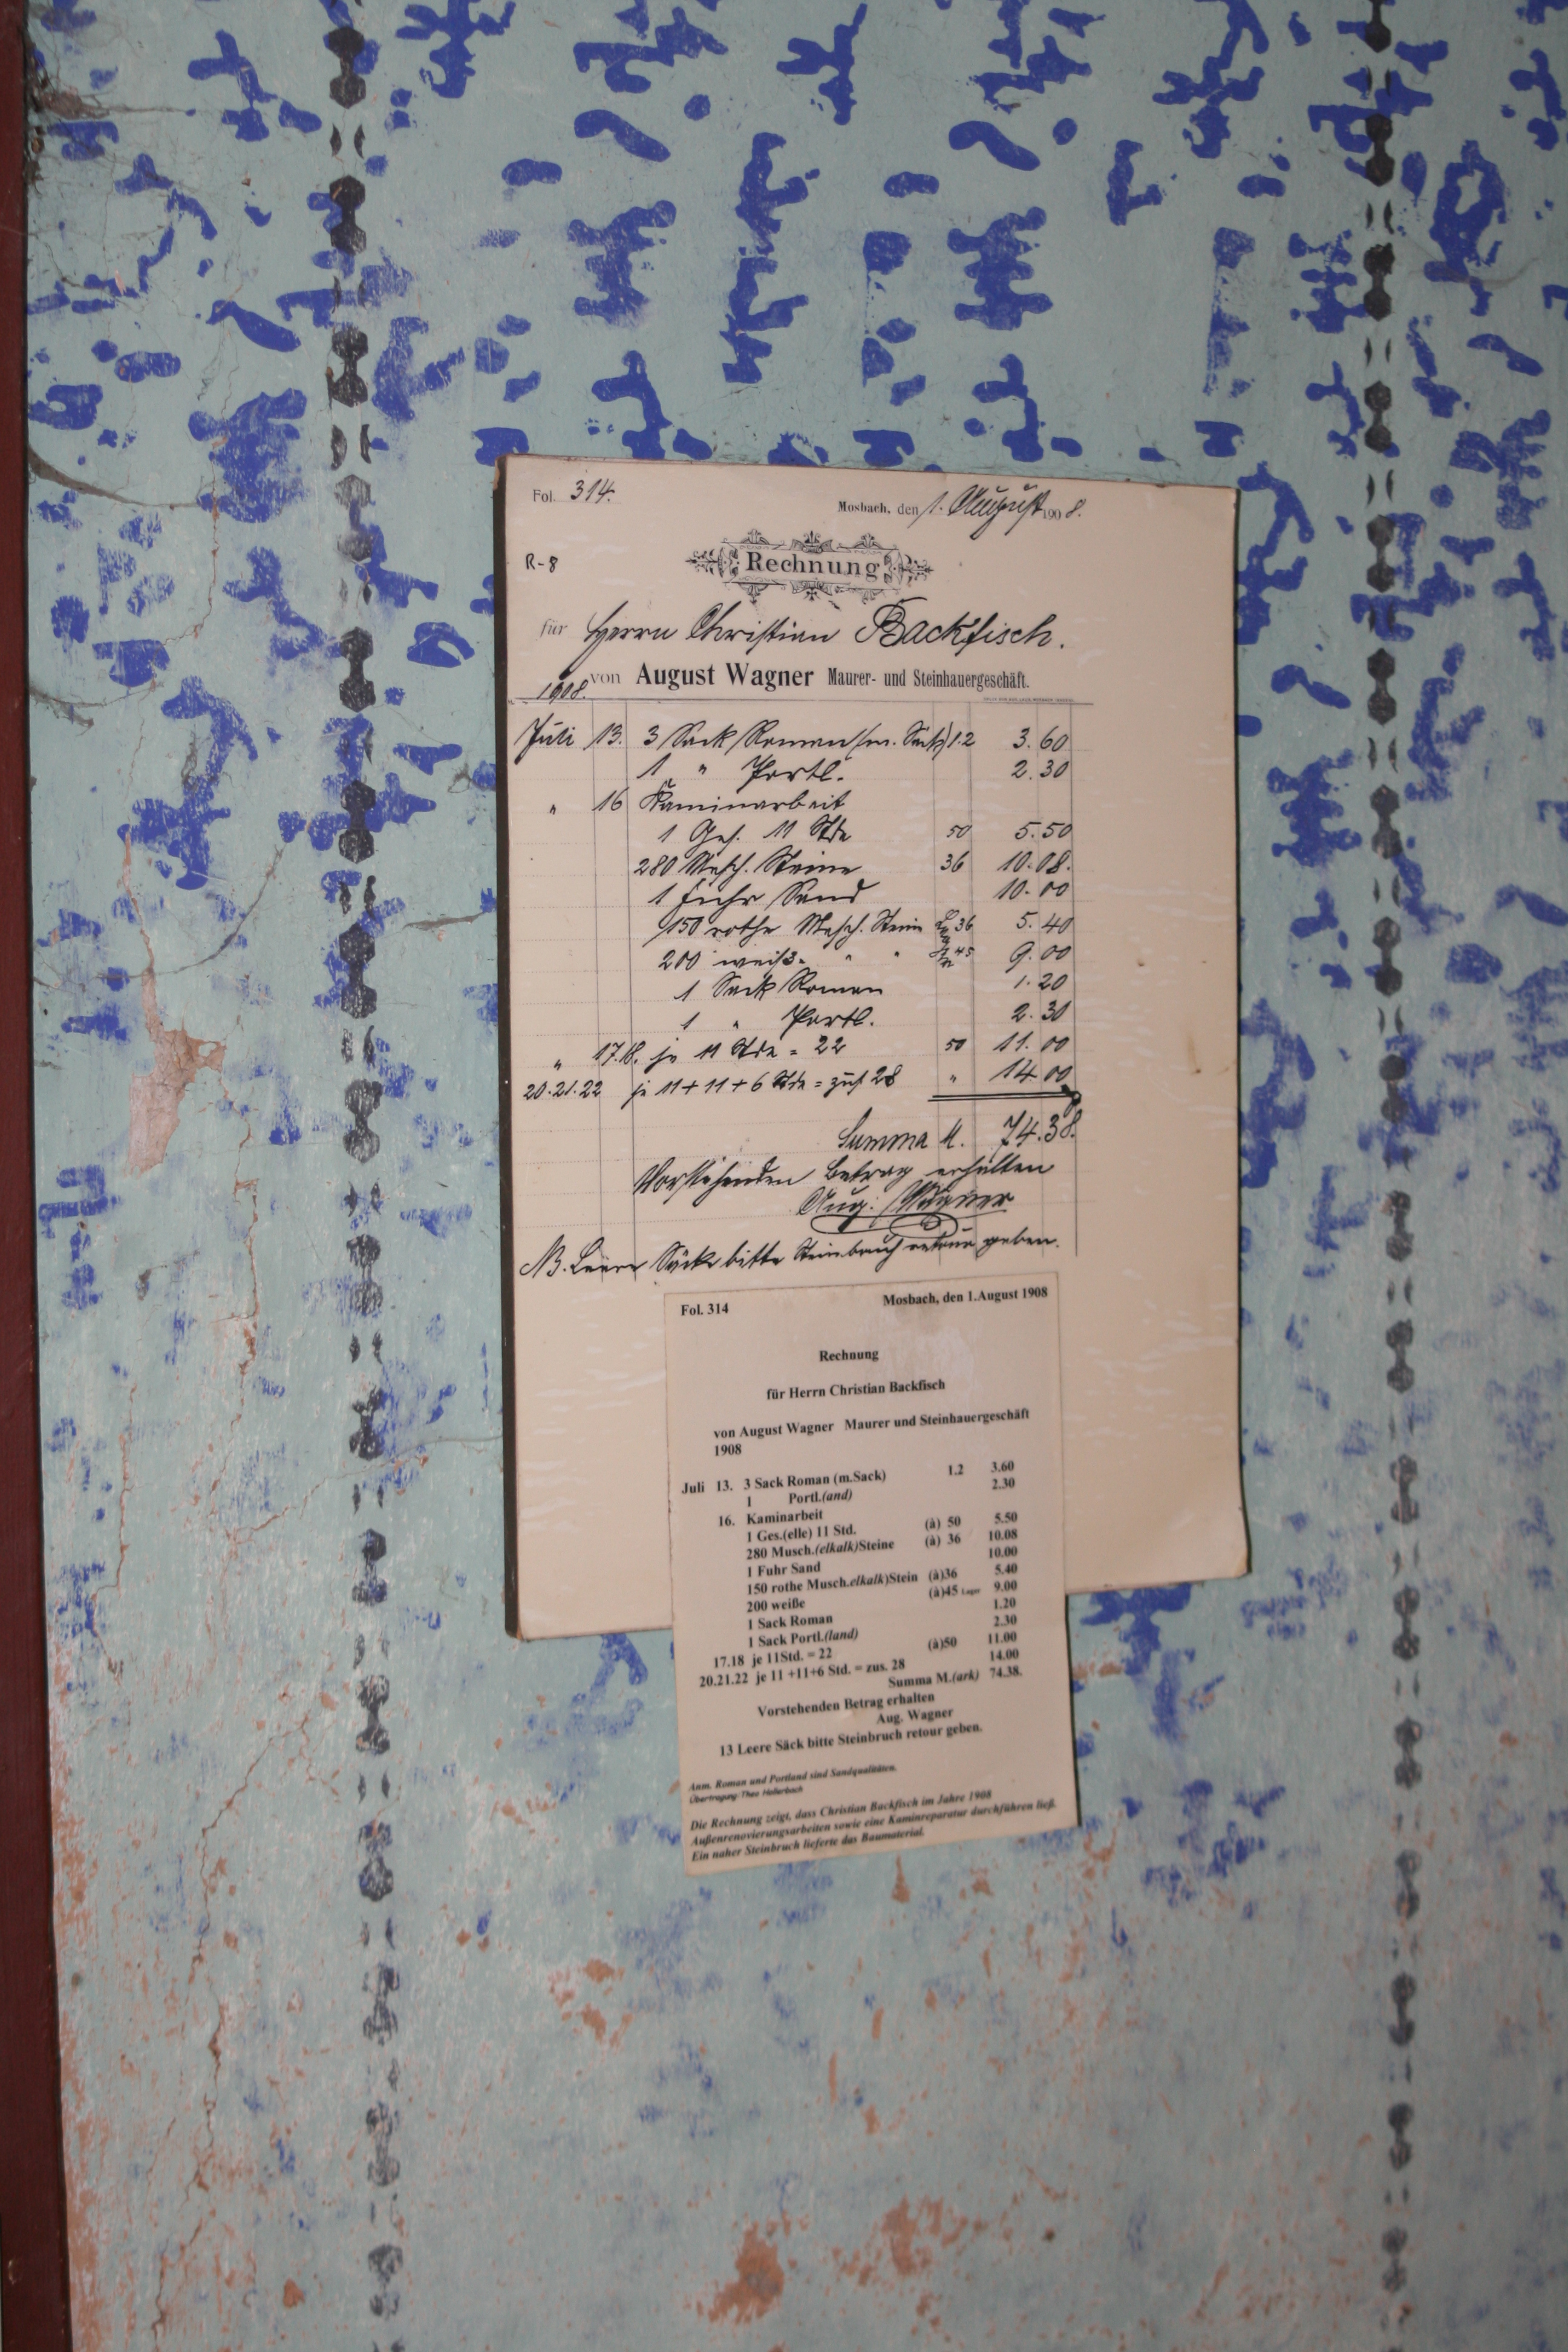 Fol. 314.
Mosbach, den 1. August 1908.
R-8
Rechnung
für Herrn Christian Backfisch.
von August Wagner Maurer- und Steinhauergeschäft.
1908.
Juli 13. 3 Sack Roman (m. Sack) 1.2 3.60
1 " Portl. 2.30
" 16 Kaminarbeit
1 Ges. 11 Stde 50 5.50
280 Masch. Steine 36 10.08.
1 Fuhr Sand 10.00
150 rothe Masch. Stein 36 5.40
200 weiße " " 45 9.00
1 Sack Roman 1.20
1 " Portl. 2.30
" 17.18. je 11 Stde = 22 50 11.00
20.21.22 je 11+11+6 Stde = zus 28 " 14.00
Summa M. 74.38.
Vorstehenden Betrag erhalten
Aug. Wagner
NB. Leere Säcke bitte Steinbruch retour geben.
Fol. 314 Mosbach, den 1.August 1908
Rechnung
für Herrn Christian Backfisch
von August Wagner Maurer und Steinhauergeschäft
1908
Juli 13. 3 Sack Roman (m.Sack) 1.2 3.60
1 Portl.(and) 2.30
16. Kaminarbeit
1 Ges.(elle) 11 Std. (à) 50 5.50
280 Musch.(elkalk)Steine (à) 36 10.08
1 Fuhr Sand 10.00
150 rothe Musch.elkalk)Stein (à)36 5.40
200 weiße (à)45 Lager 9.00
1 Sack Roman 1.20
1 Sack Portl.(land) 2.30
17.18 je 11Std. = 22 (à)50 11.00
20.21.22 je 11 +11+6 Std. = zus. 28 14.00
Summa M.(ark) 74.38.
Vorstehenden Betrag erhalten
Aug. Wagner
13 Leere Säck bitte Steinbruch retour geben.
Anm. Roman und Portland sind Sandqualitäten.
Übertragung: Theo Hollerbach
Die Rechnung zeigt, dass Christian Backfisch im Jahre 1908
Außenrenovierungsarbeiten sowie eine Kaminreparatur durchführen ließ.
Ein naher Steinbruch lieferte das Baumaterial.